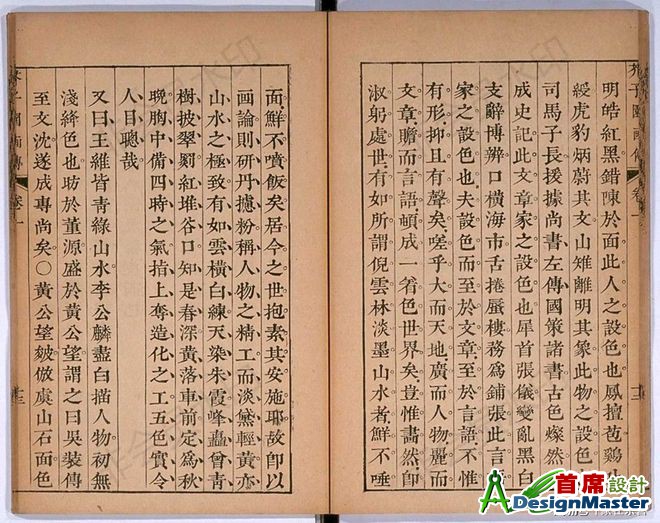 芥子園畫傳 卷一
明皓紅黑錯陳於面此人之設色也鳳擅苞鷄
綬虎豹炳蔚其文山雉離明其象此物之設色
司馬子長援據尚書左傳國策諸書古色燦然
成史記此文章家之設色也犀首張儀變亂黑白
支辭博辨口橫海市舌捲蜃樓務爲鋪張此言
家之設色也夫設色而至於文章至於言語不惟
有形抑且有聲矣嗟乎大而天地廣而人物麗而
文章贍而言語頓成一着色世界矣豈惟畫然即
淑躬處世有如所謂倪雲林淡墨山水者鮮不唾
面鮮不噴飯矣居今之世抱素其安施耶故即以
画論則研丹摅粉稱人物之精工而淡黛輕黃亦
山水之極致有如雲橫白練天染朱霞峰矗曾青
樹披翠罽紅堆谷口知是春深黃落車前定爲秋
晚胸中備四時之氣指上奪造化之工五色實令
人目聰哉
又曰王維皆青綠山水李公麟盡白描人物初無
淺絳色也昉於董源盛於黃公望謂之曰吳裝傳
至文沈遂成專尚矣〇黃公望皴倣虞山石面色
卷一
首席設計
ADesignMaster